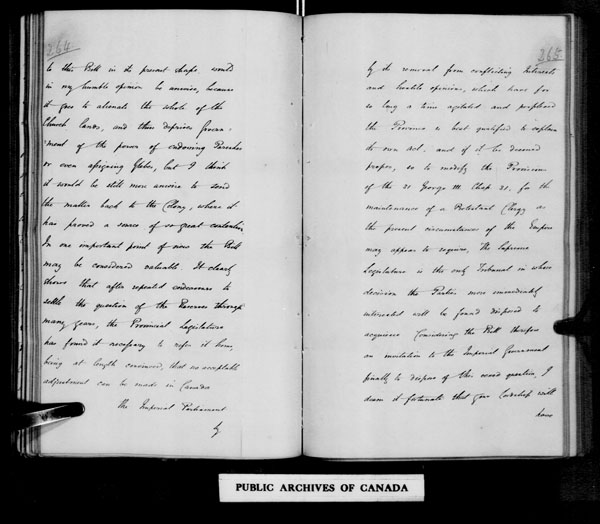 264
to this Bill in its present shape. would
in my humble opinion be unwise, because
it goes to alienate the whole of the
Church lands, and thus deprives Govern-
ment of the power of endowing Parishes
or even assigning Glebes, but I think
it would be still more unwise to send
the matter back to the Colony, where it
has proved a source of so great contention
In one important point of view the Bill
may be considered valuable. It clearly
shews that after repeated endeavours to
settle the question of the Reserves through
many years, the Provincial Legislature
has found it necessary to refer it home,
being at length convinced, that no acceptable
adjustment can be made in Canada
The Imperial Parliament
by
265
by its removal from conflicting Interests
and hostile opinions, which have for
so long a time agitated and perplexed
the Province is best qualified to explain
its own Act, and if it be deemed
proper, so to modify the Provision
of the 31 George III. Chap 31, for the
maintenance of a Protestant Clergy as
the present circumstances of the Empire
may appear to require, The Supreme
Legislature is the only Tribunal in whose
decision the Parties more immediately
interested will be found disposed to
acquiesce Considering the Bill therefore
an invitation to the Imperial Government
finally to dispose of this vexed question, I
deem it fortunate that your Lordship will
have
PUBLIC ARCHIVES OF CANADA